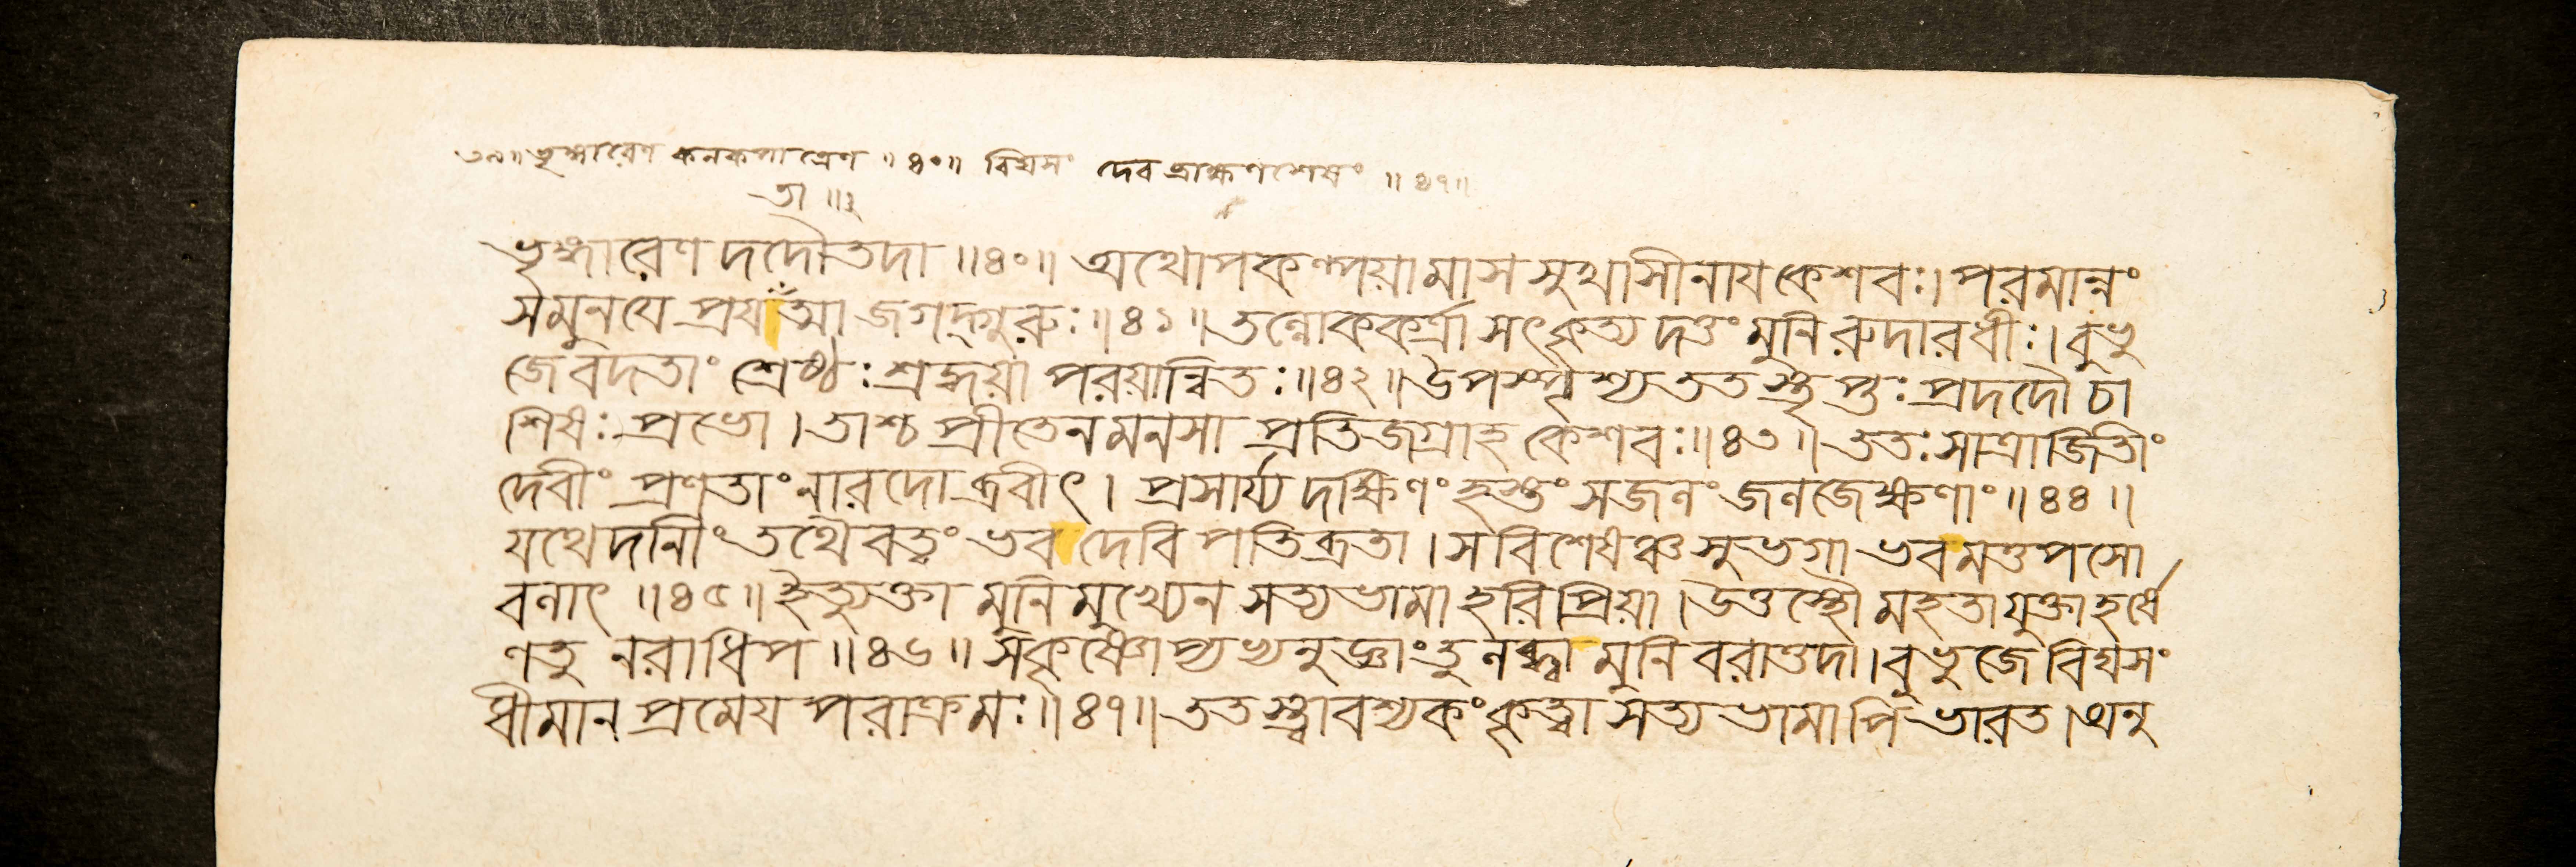 ৩৯॥ ভৃঙ্গারেণ কনকপাত্রেণ ॥৪০॥ বিঘসং দেবব্রাহ্মণশেষং ॥৪৭॥
তা ॥২
ভৃঙ্গারেণ দদৌতদা ॥৪০॥ অথোপকল্পয়ামাস সুখাসীনায কেশবঃ। পরমান্নং
সমুনযে প্রযতাত্মা জগদ্গুরুঃ॥৪১॥ তল্লোককর্ত্রা সৎকৃত্য দত্তং মুনিরুদারধীঃ। বুভু
জে বদতাং শ্রেষ্ঠঃ শ্রদ্ধয়া পরয়ান্বিতঃ॥৪২॥ উপস্পৃশ্য ততস্তৃপ্তঃ প্রদদৌ চা
শিষঃ প্রভো। তাশ্চ প্রীতেনমনসা প্রতিজগ্রাহ কেশবঃ॥৪৩॥ ততঃ সাত্রাজিতিং
দেবীং প্রণতাং নারদো ব্রবীৎ। প্রসার্য্য দক্ষিণং হস্তং সজলং জলজেক্ষণাং॥৪৪॥
যথেদানীং তথৈবত্বং ভব দেবি পতিব্রতা। সবিশেষঞ্চ সুভগা ভব মত্তপসো
বলাৎ ॥৪৫॥ ইত্যুক্তা মুনিমুখ্যেন সত্যভামা হরিপ্রিয়া। উত্তস্থৌ মহতা যুক্তা হর্ষে
ণতু নরাধিপ ॥৪৬॥ সকৃষ্ণোপ্যভ্যনুজ্ঞাং তু লব্ধ্বা মুনিবরাত্তদা। বুভুজে বিঘসং
ধীমান প্রমেয পরাক্রমঃ॥৪৭॥ ততস্ত্বাবশ্যকং কৃত্বা সত্যভামাপি ভারত। অনু